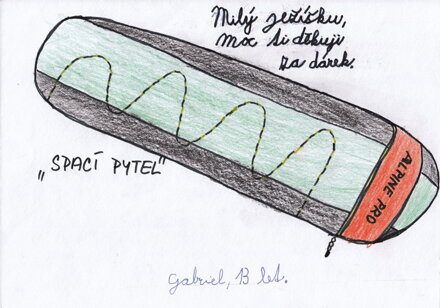 Milý ježíšku,
moc ti děkuji
za dárek.
„SPACÍ PYTEL"
ALPINE PRO
Gabriel, 13 let.